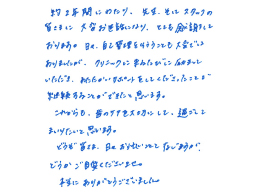 約2年間にわたり、先生、そしてスタッフの
皆さまに大変お世話になり、とても感謝して
おります。日々、自己管理を行うことも大変では
ありましたが、クリニックに来るたびに励まして
いただき、あたたかいサポートをしてくださったことで
継続することができたと思います。
これからも、歯のケアを大切にして、過ごして
まいりたいと思います。
どうぞ皆さま、日々お忙しいことと存じますが、
どうかご自愛くださいませ。
本当にありがとうございました。